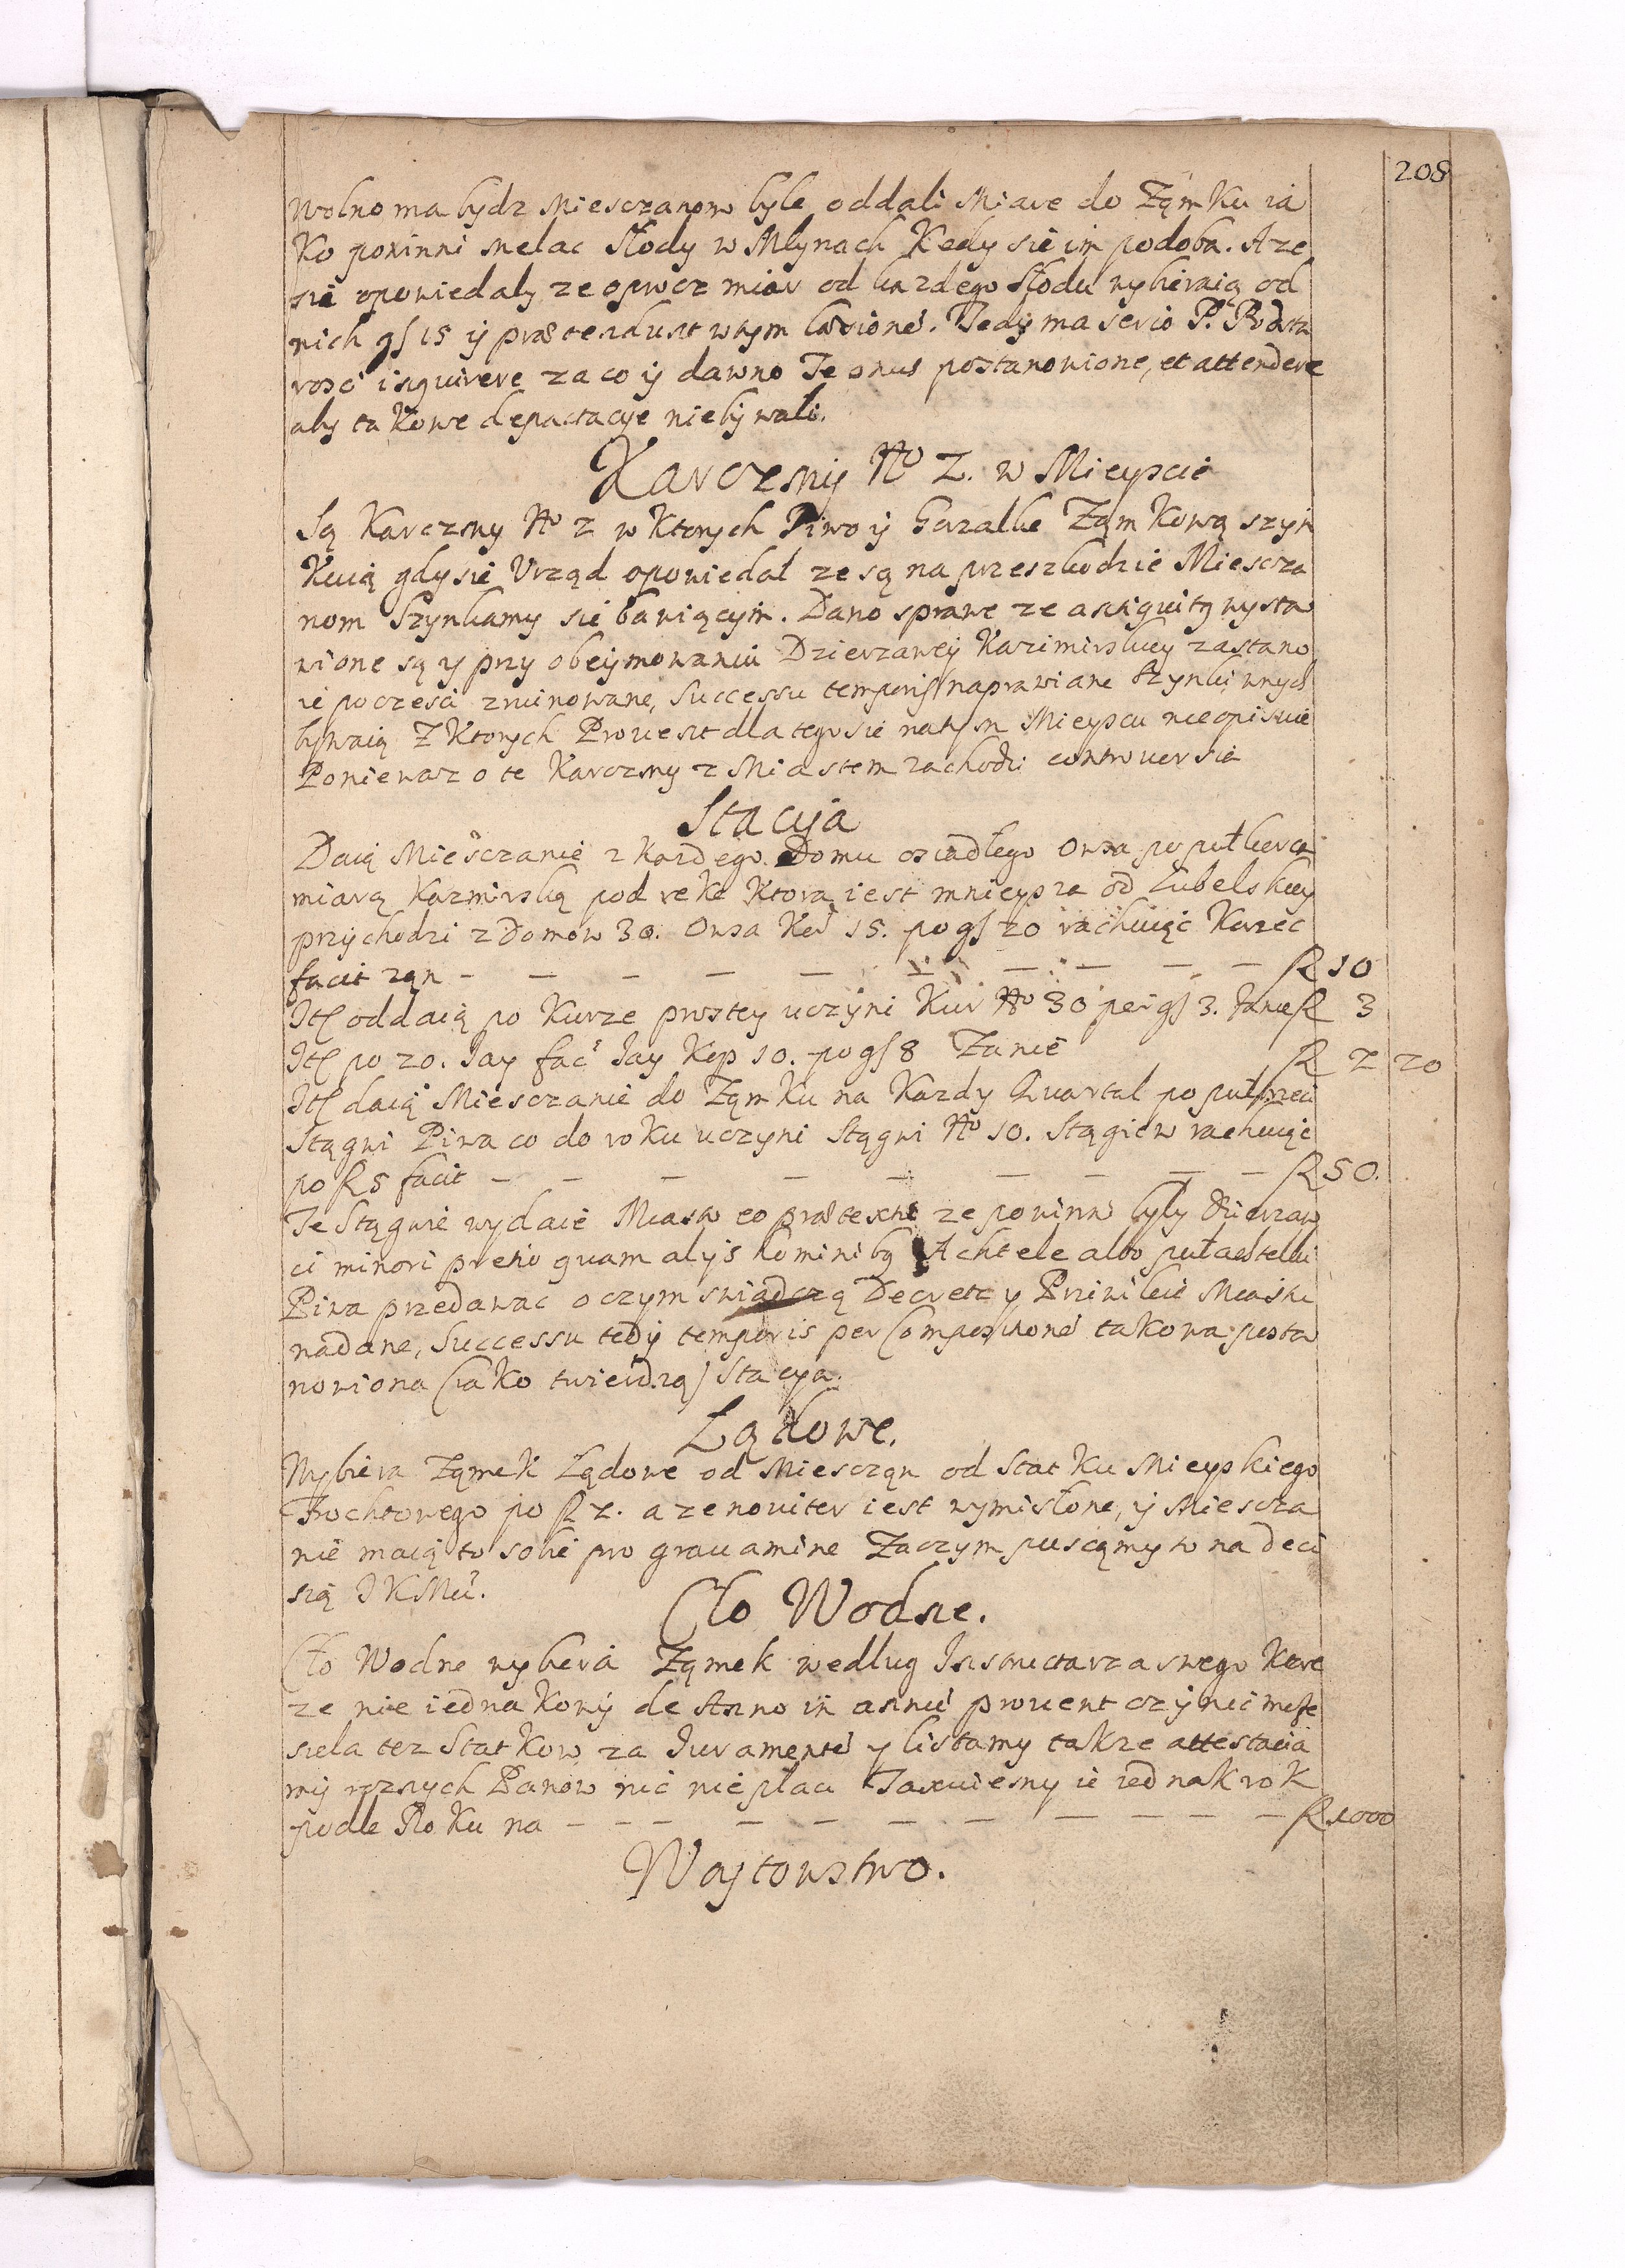 208
Wolno ma bydz Miesczanom byle oddali Miare do Zamku ia
Ko powinni melac Słody w Młynach Kedy sie im podoba. A ze
sie opowiedały ze oprocz miar od kazdego Słodu wybieraią od
nich gſ 15 ÿ prætendunt wtym læsioné. Tedÿ ma serio P. Podsta
rosci inquirere za co ÿ dawno Te onus postanowione, et attendere
aby takowe depactacÿe niebÿwali.
Karczmÿ No 2. w Mieyscie
Są Karczmy No 2 w Ktorych Piwo ÿ Gorzalke Zamkową szyn
Kuią gdy sie Vrząd opowiedał ze są na przeszkodzie Miescza
nom Szynkamy sie bawiącym. Dano sprawe ze antiquitq wysta
wione są y przy obeÿmowaniu Dzierzaweÿ Kazimirskiey zastano
ie poczesci zruinowane, Successu temporis naprawiane
bywaią Z Ktorych Prouent dlatego sie natym Mieyscu nieopisuie
Poniewaz o te Karczmy z Miastem zachodzi controuersia
Stacÿa
Daią Miesczanie z Kazdego Domu osiadłego Owsa po puł korca
miarą Kazmirską pod reke Ktora iest mnieysza od Lubelskiey
przÿchodzi z Domow 30. Owsa Kor 15. po gſ 20 rachuiąc Korzec
facit zan – – – – – – – – – – ƒl 10
Itſ oddaią po Kurze prostey uczÿni Kur No 30 per gſ 3. Zanie ƒl 3
Itſ po 20. Jay fac Jay Kop 10. po gſ 8 Zanie ƒl 2 20
Itſ daią Miesczanie do Zamku na Kazdy Quartal po pułtrzeci
Stągwi Piwa co do roku uczyni Stągwi No 10. Stągiew rachuiąc
po ƒl 5 facit – – – – – – – – – ƒl 50.
Te Stągwie wydaie Miasto eo prætextu ze powinni były Dzierzaw
ci minori pretio quam alÿs hominibq Achtele albo pułachtelki
Piwa przedawac o czym swiadczą Decreta y Priwileie Miasku
nadane, Successu tedÿ temporis per Compositioné takowa posta
nowiona (iako twierdzą) Stacya.
Lądowe.
Wybiera Zamek Lądowe od Miesczan od Statku Mieyskiego
Frochtowego po ƒl 2. a ze nouiter iest wymislone, ÿ Miescza
nie maią to sobie pro grauamine Zaczym pusczamy to na deci
sią J K Mci.
Cło Wodne.
Cło Wodne wybiera Zamek według Instructarza swego Ktore
ze nie iednakowÿ de Anno in annu prouent czÿni
siela tez Statkow za Juramenté y listamy takze attestacia
mÿ roznych Panow nic nie płaci Taxuiemy ie iednak rok
podle Roku na – – – – – – – – – – ƒl 1000
Wojtowstwo.